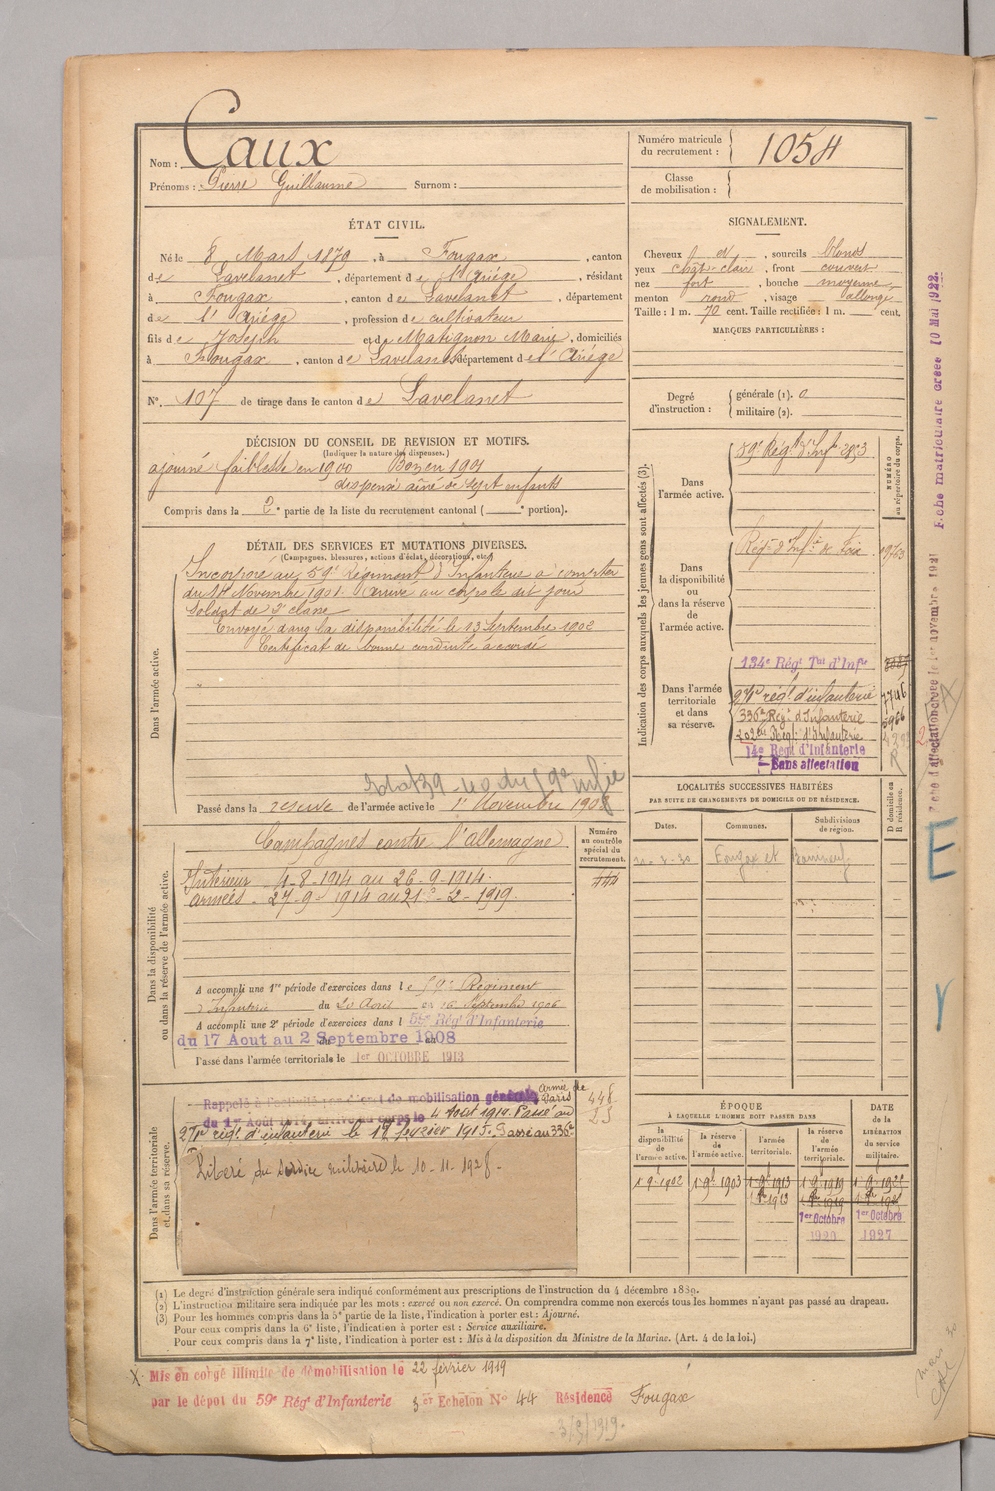 Nom : Caux
Prénoms : Pierre Guillaume Surnom :
Numéro matricule du recrutement : 1054
Classe de mobilisation :
ÉTAT CIVIL.
Né le 8 Mars 1879, à Fougax, canton
de Lavelanet, département de l'Ariége, résidant
à Fougax, canton de Lavelanet, département
de l'Ariége, profession de cultivateur
fils de Joseph et de Matignon Marie, domiciliés
à Fougax, canton de Lavelanet département de l'Ariége
N°. 107 de tirage dans le canton de Lavelanet
SIGNALEMENT.
Cheveux et , sourcils blonds
yeux chât-clair, front couvert
nez fort, bouche moyenne,
menton rond, visage allongé
Taille : 1 m. 70 cent. Taille rectifiée : 1 m. cent.
MARQUES PARTICULIÈRES :
Degré d'instruction : générale (1). 0
militaire (2).
DÉCISION DU CONSEIL DE REVISION ET MOTIFS.
(Indiquer la nature des dispenses.)
ajourné faiblesse en 1900 Bon en 1901
dispensé aîné de sept enfants
Compris dans la 2e partie de la liste du recrutement cantonal ( e portion).
DÉTAIL DES SERVICES ET MUTATIONS DIVERSES.
(Campagnes, blessures, actions d'éclat, décorations, etc.)
Dans l'armée active.
Incorporé au 59e Régiment d'Infanterie à compter
du 14 Novembre 1901. Arrivé au corps le dit jour
Soldat de 2e classe
Envoyé dans la disponibilité le 13 Septembre 1902
Certificat de bonne conduite accordé
Passé dans la réserve de l'armée active le 1er Novembre 190
Indication des corps auxquels les jeunes gens sont affectés (3).
NUMÉRO au répertoire du corps.
Dans l'armée active.
59e Régt d'Inf
Dans la disponibilité ou dans la réserve de l'armée active.
Régt d'Infie de Foix
Dans l'armée territoriale et dans sa réserve.
134e Régt Tal d'Infie
271e régt d'infanterie 7746
336e Régt d'Infanterie
202e Régt d'Infanterie
14e Régt d'Infanterie
Sans affectation
Dans la disponibilité ou dans la réserve de l'armée active.
Numéro au contrôle spécial du recrutement.
Campagnes contre l'allemagne
Intérieur 4-8-1914 au 26-9-1914.
armées - 27-9-1914 au 21-2-1919.
A accompli une 1re période d'exercices dans le 59e Régiment
d'Infanterie du 20 Août au 16 Septembre 1906
A accompli une 2e période d'exercices dans l 59e Rég. d'Infanterie
du 17 Aout au 2 Septembre 1908
Passé dans l'armée territoriale le 1er OCTOBRE 1913
LOCALITÉS SUCCESSIVES HABITÉES
PAR SUITE DE CHANGEMENTS DE DOMICILE OU DE RÉSIDENCE.
Dates. Communes. Subdivisions de région. D domicile ou R résidence.
Fougax et Barrineuf
Dans l'armée territoriale et dans sa réserve.
Rappelé à l'activité par décret de mobilisation générale armée de Paris
du 1er Aout 1914, arrivé au corps le 4 Aout 1914. Passé au
271e régt d'infanterie le 18 février 1915. Passé au 336e
Libéré du service militaire le 10-11-1928.
448
ÉPOQUE
À LAQUELLE L'HOMME DOIT PASSER DANS
DATE DE LA LIBÉRATION du service militaire.
la disponibilité de l'armée active. la réserve de l'armée active. l'armée territoriale. la réserve de l'armée territoriale.
1-9-1902 1-9t-1903 1-9-1913 1-9-1919
1er Octobre 1er Octobre
1920 1927
(1) Le degré d'instruction générale sera indiqué conformément aux prescriptions de l'instruction du 4 décembre 1889.
(2) L'instruction militaire sera indiquée par les mots : exercé ou non exercé. On comprendra comme non exercés tous les hommes n'ayant pas passé au drapeau.
(3) Pour les hommes compris dans la 5e partie de la liste, l'indication à porter est : Ajourné.
Pour ceux compris dans la 6e liste, l'indication à porter est : Service auxiliaire.
Pour ceux compris dans la 7e liste, l'indication à porter est : Mis à la disposition du Ministre de la Marine. (Art. 4 de la loi.)
X. Mis en congé illimité de démobilisation le 22 février 1919
par le dépot du 59e Rég. d'Infanterie 3er Echelon N° 44 Résidence Fougax
Fiche matriculaire créée 10 Mai 1922.
E